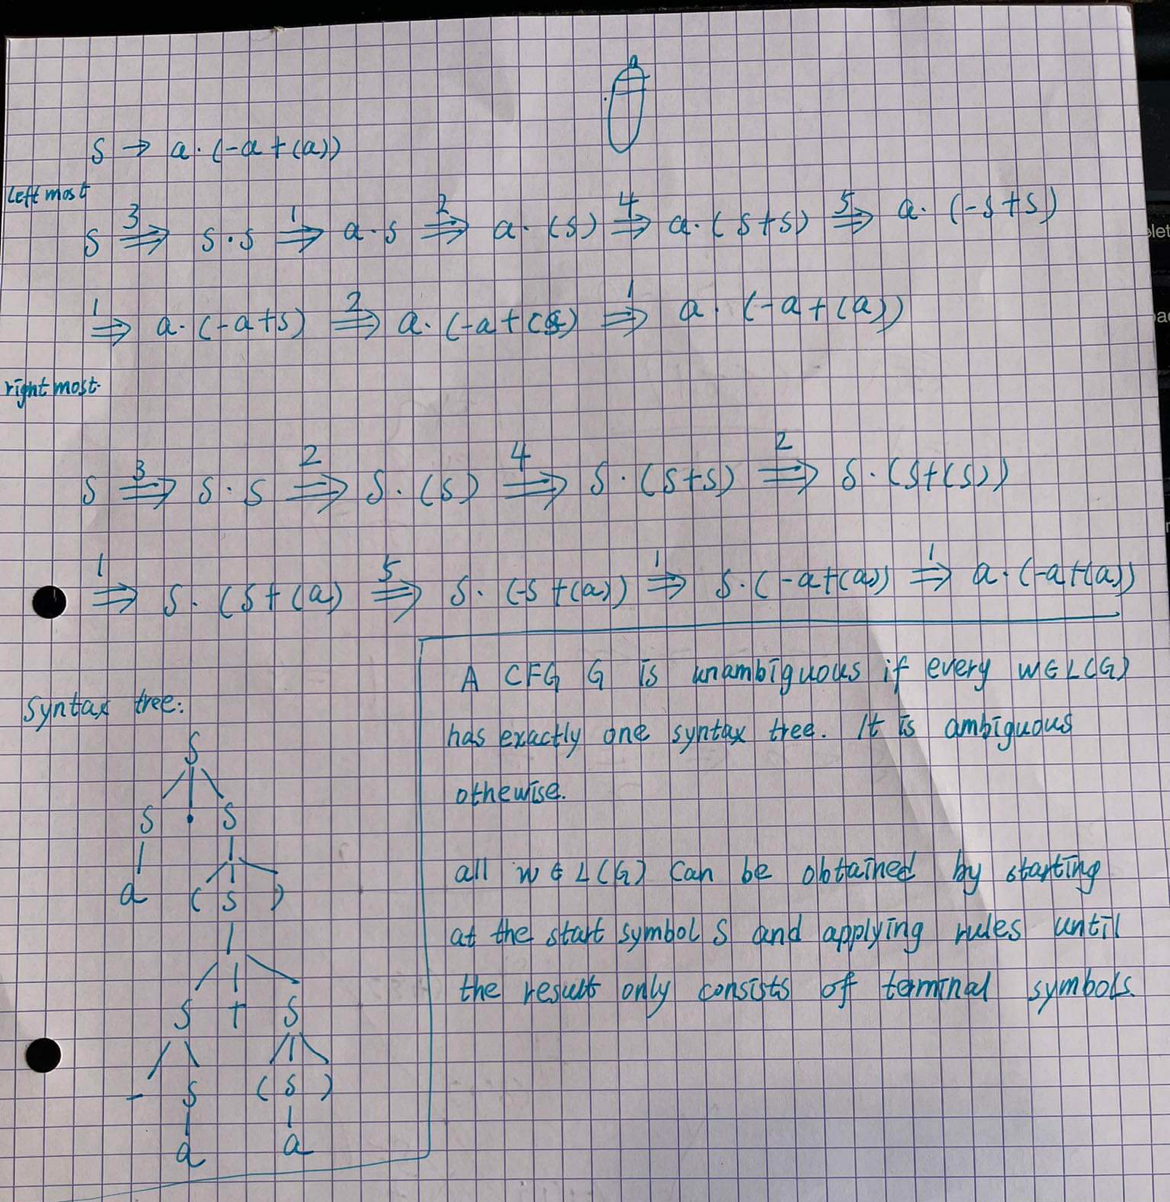 S → a·(-a+(a))
Left most
S 3⇒ S·S 1⇒ a·S 2⇒ a·(S) 4⇒ a·(S+S) 5⇒ a·(-S+S)
1⇒ a·(-a+S) 2⇒ a·(-a+(S) 1⇒ a·(-a+(a))
right most
S 3⇒ S·S 2⇒ S·(S) 4⇒ S·(S+S) 2⇒ S·(S+(S))
1⇒ S·(S+(a) 5⇒ S·(-S+(a)) 1⇒ S·(-a+(a)) 1⇒ a·(-a+(a))
Syntax tree:
S
S · S
a ( S )
S + S
- S ( S )
a a
A CFG G is unambiguous if every w∈L(G)
has exactly one syntax tree. It is ambiguous
othewise.
all w∈L(G) can be obtained by starting
at the start symbol S and applying rules until
the result only consists of terminal symbols.